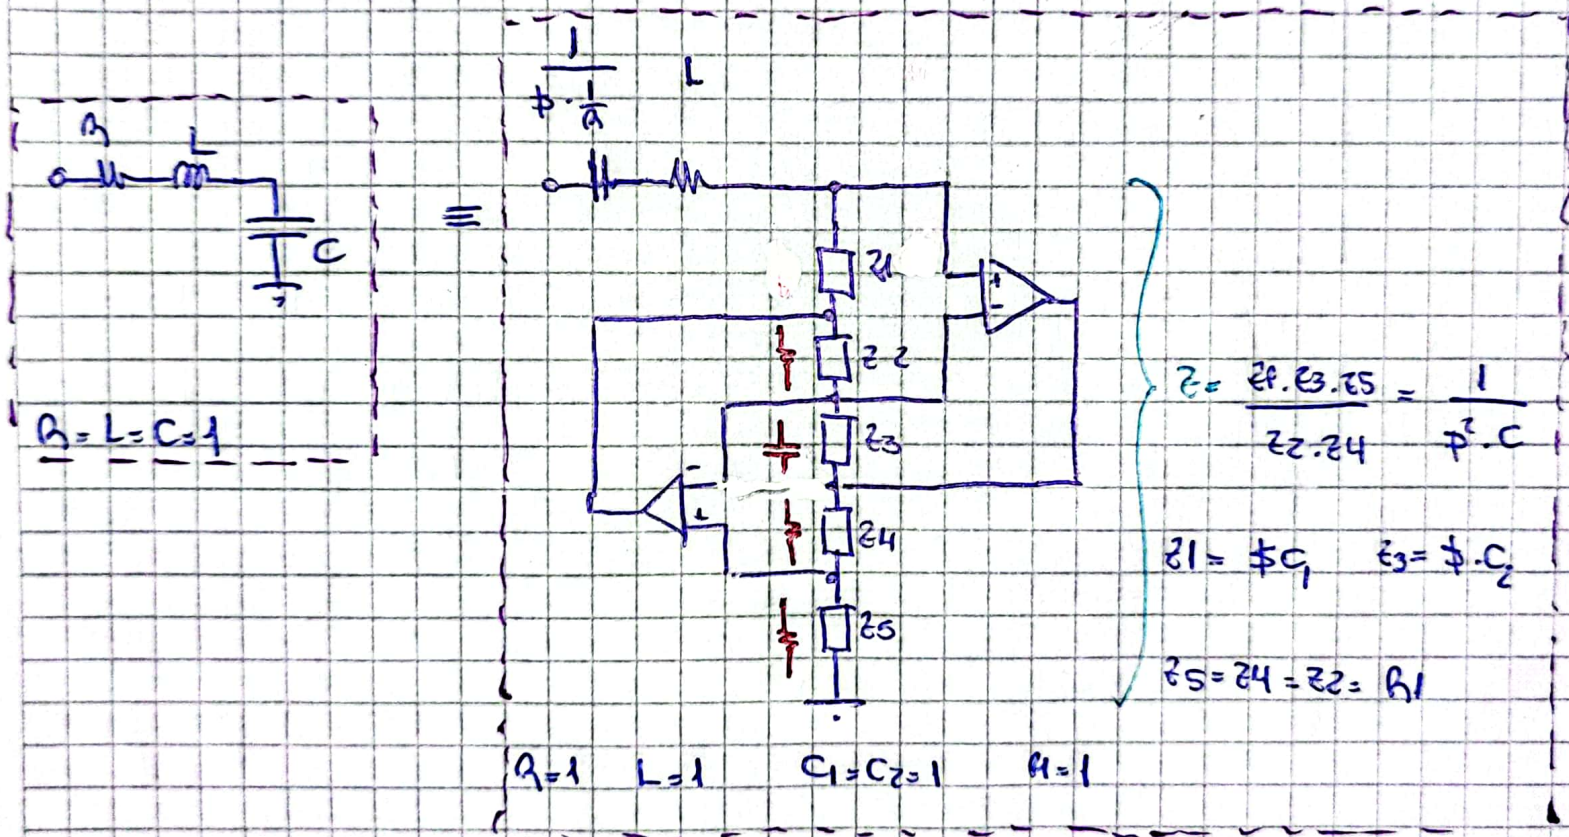 R
L
C
R=L=C=1
≡
1
$ · 1/R
L
Z1
+
-
Z2
Z3
-
+
Z4
Z5
Z = Z1.Z3.Z5 / Z2.Z4 = 1 / $².C
Z1 = $C₁ Z3 = $.C₂
Z5=Z4=Z2= R1
R=1 L=1 C₁=C₂=1 R1=1